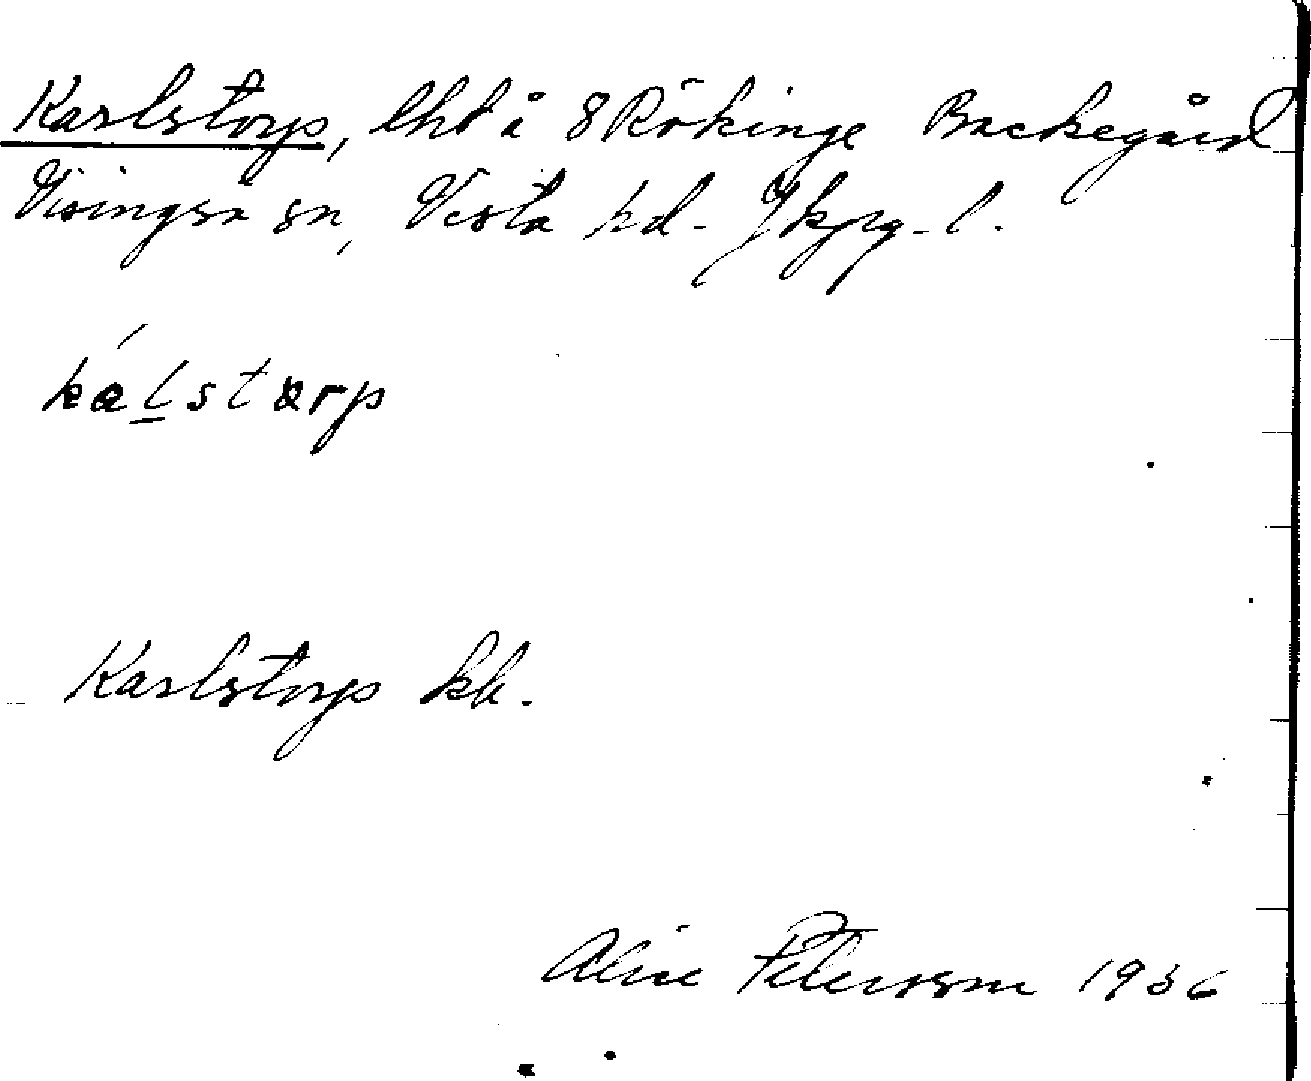 Karlstorp, lht å 8 Rökinge Backegård
Visingsö sn, Vista hd. Jkpg. l.
kálstarp
Karlstorp kb.
Alice Petersson 1936